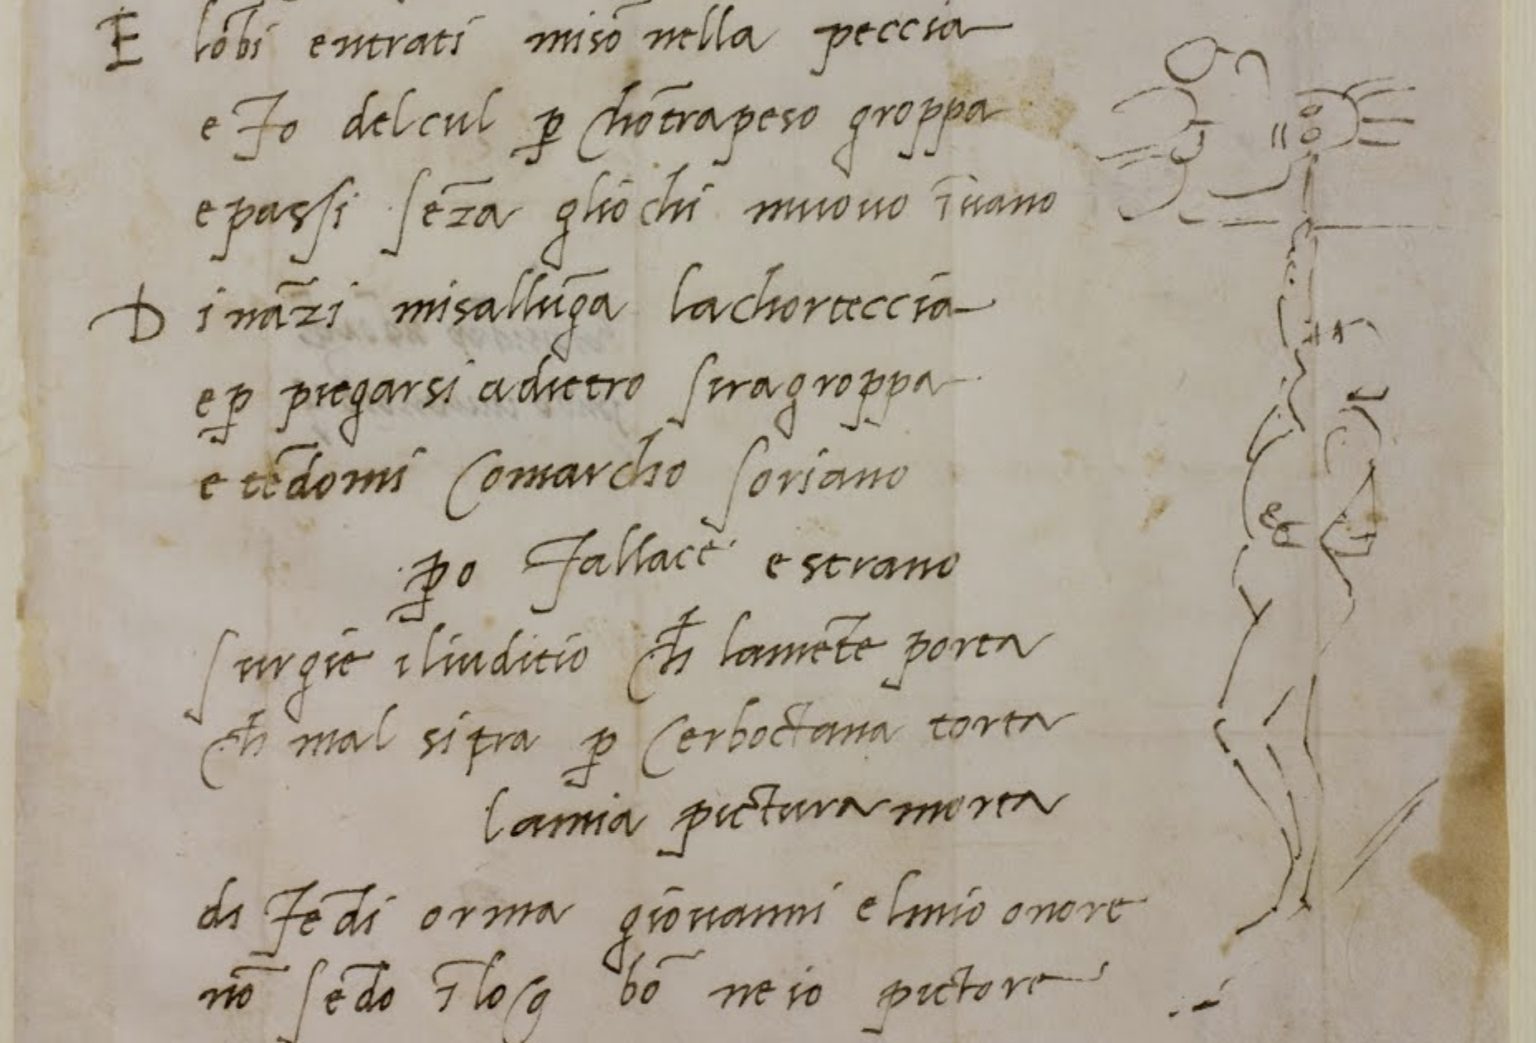 E lōbi entrati misō nella peccia
e fo del cul p̱ chōtrapeso groppa
e passi sēza gliochi muouo īuano
D inā̄zi misallūga lachorteccia
e p̱ piegarsi adietro siragroppa
e tēdomi comarcho soriano
p̱o fallace e strano
surgie iliuditio ch̄ lamēte porta
ch̄ mal si tra p̱ cerboctana torta
lamia pictura morta
di fēdi orma giouanni elmio onore
nō sēdo ī loco bō ne io pictore